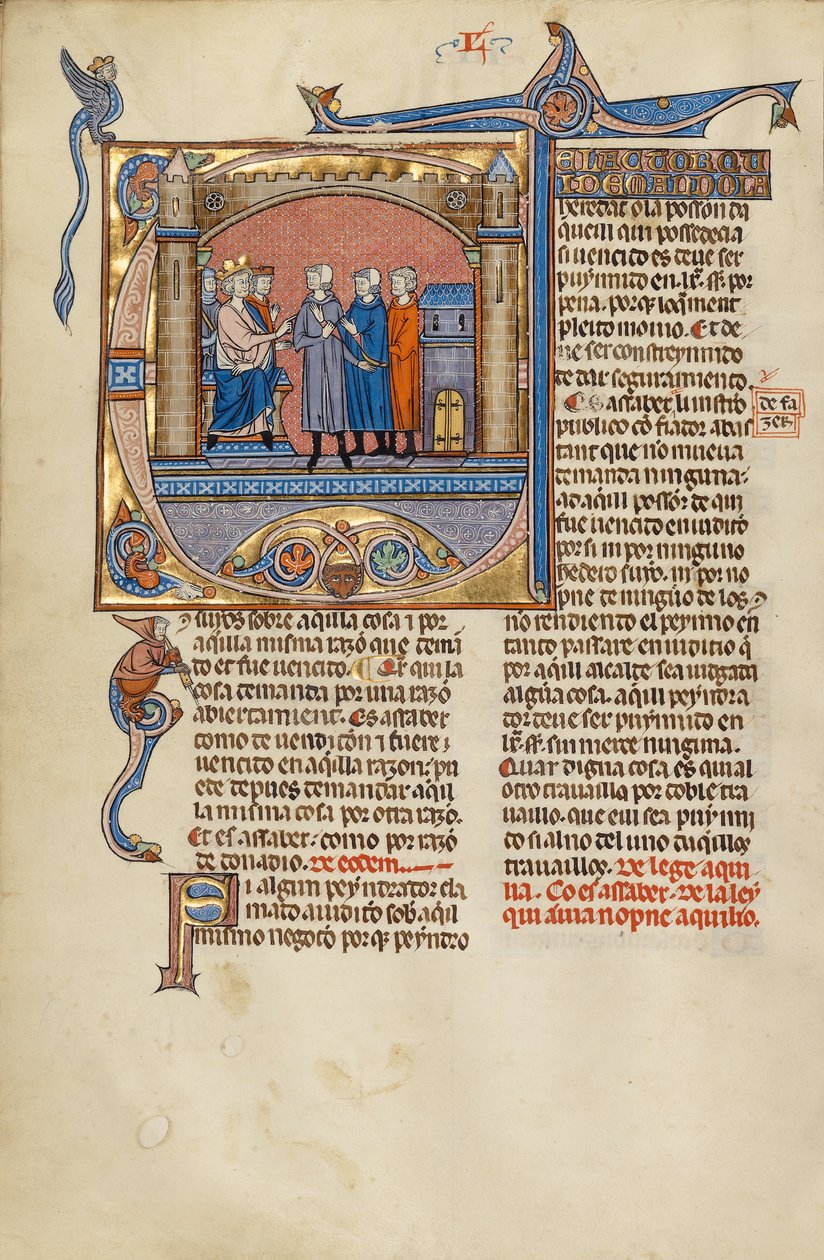 I4
ELACTORQU
IDEMANDOLA
heredat o la posson da
quell qui possedecia
si uencido es deue ser
puynnido en .lx. ss. por
pena. porq̄ loq̄ment
pleito mouio. Et de
ue ser constreynnido
de dar seguramiento.
Es assaber, li instrō
de fa
zer
publico cō fiador abas
tant que nō mueua
demanda ninguna
ad aq̄ill possor de qui
fue uencido en iudicō
por si ni por ninguno
hedero suyo. ni por no
pne de ningūo de los
suyos sobre aq̄illa cosa i por
aq̄illa misma razō que demā
do et fue uencido. Er qui la
cosa demanda por una razō
abiertament. Es assaber
como de uendicōn i fuere
uencido en aq̄illa razon: pu
ede depues demandar aq̄ll
la misma cosa por otra razō.
Et es assaber: como por razō
de donadio. De eodem.
Si algun peyndrador cla
mado a iudicō sob̄ aq̄ll
mismo negocō por q̄ peyndro
nō rendiendo el peynno en
tanto passare en iuditio q̄
por aq̄ill alcalde sea iudgada
algūa cosa. aq̄ill peyndra
dor deue ser puynnido en
lx. ss. sin merce ninguna.
Quar digna cosa es qui al
otro trauaillo por doble tra
uaillo. que eill sea puynni
do si al no del uno daq̄llos
trauaillos. De lege aqui
lia. Co es assaber. De la ley
qui auia nopne aquilio.